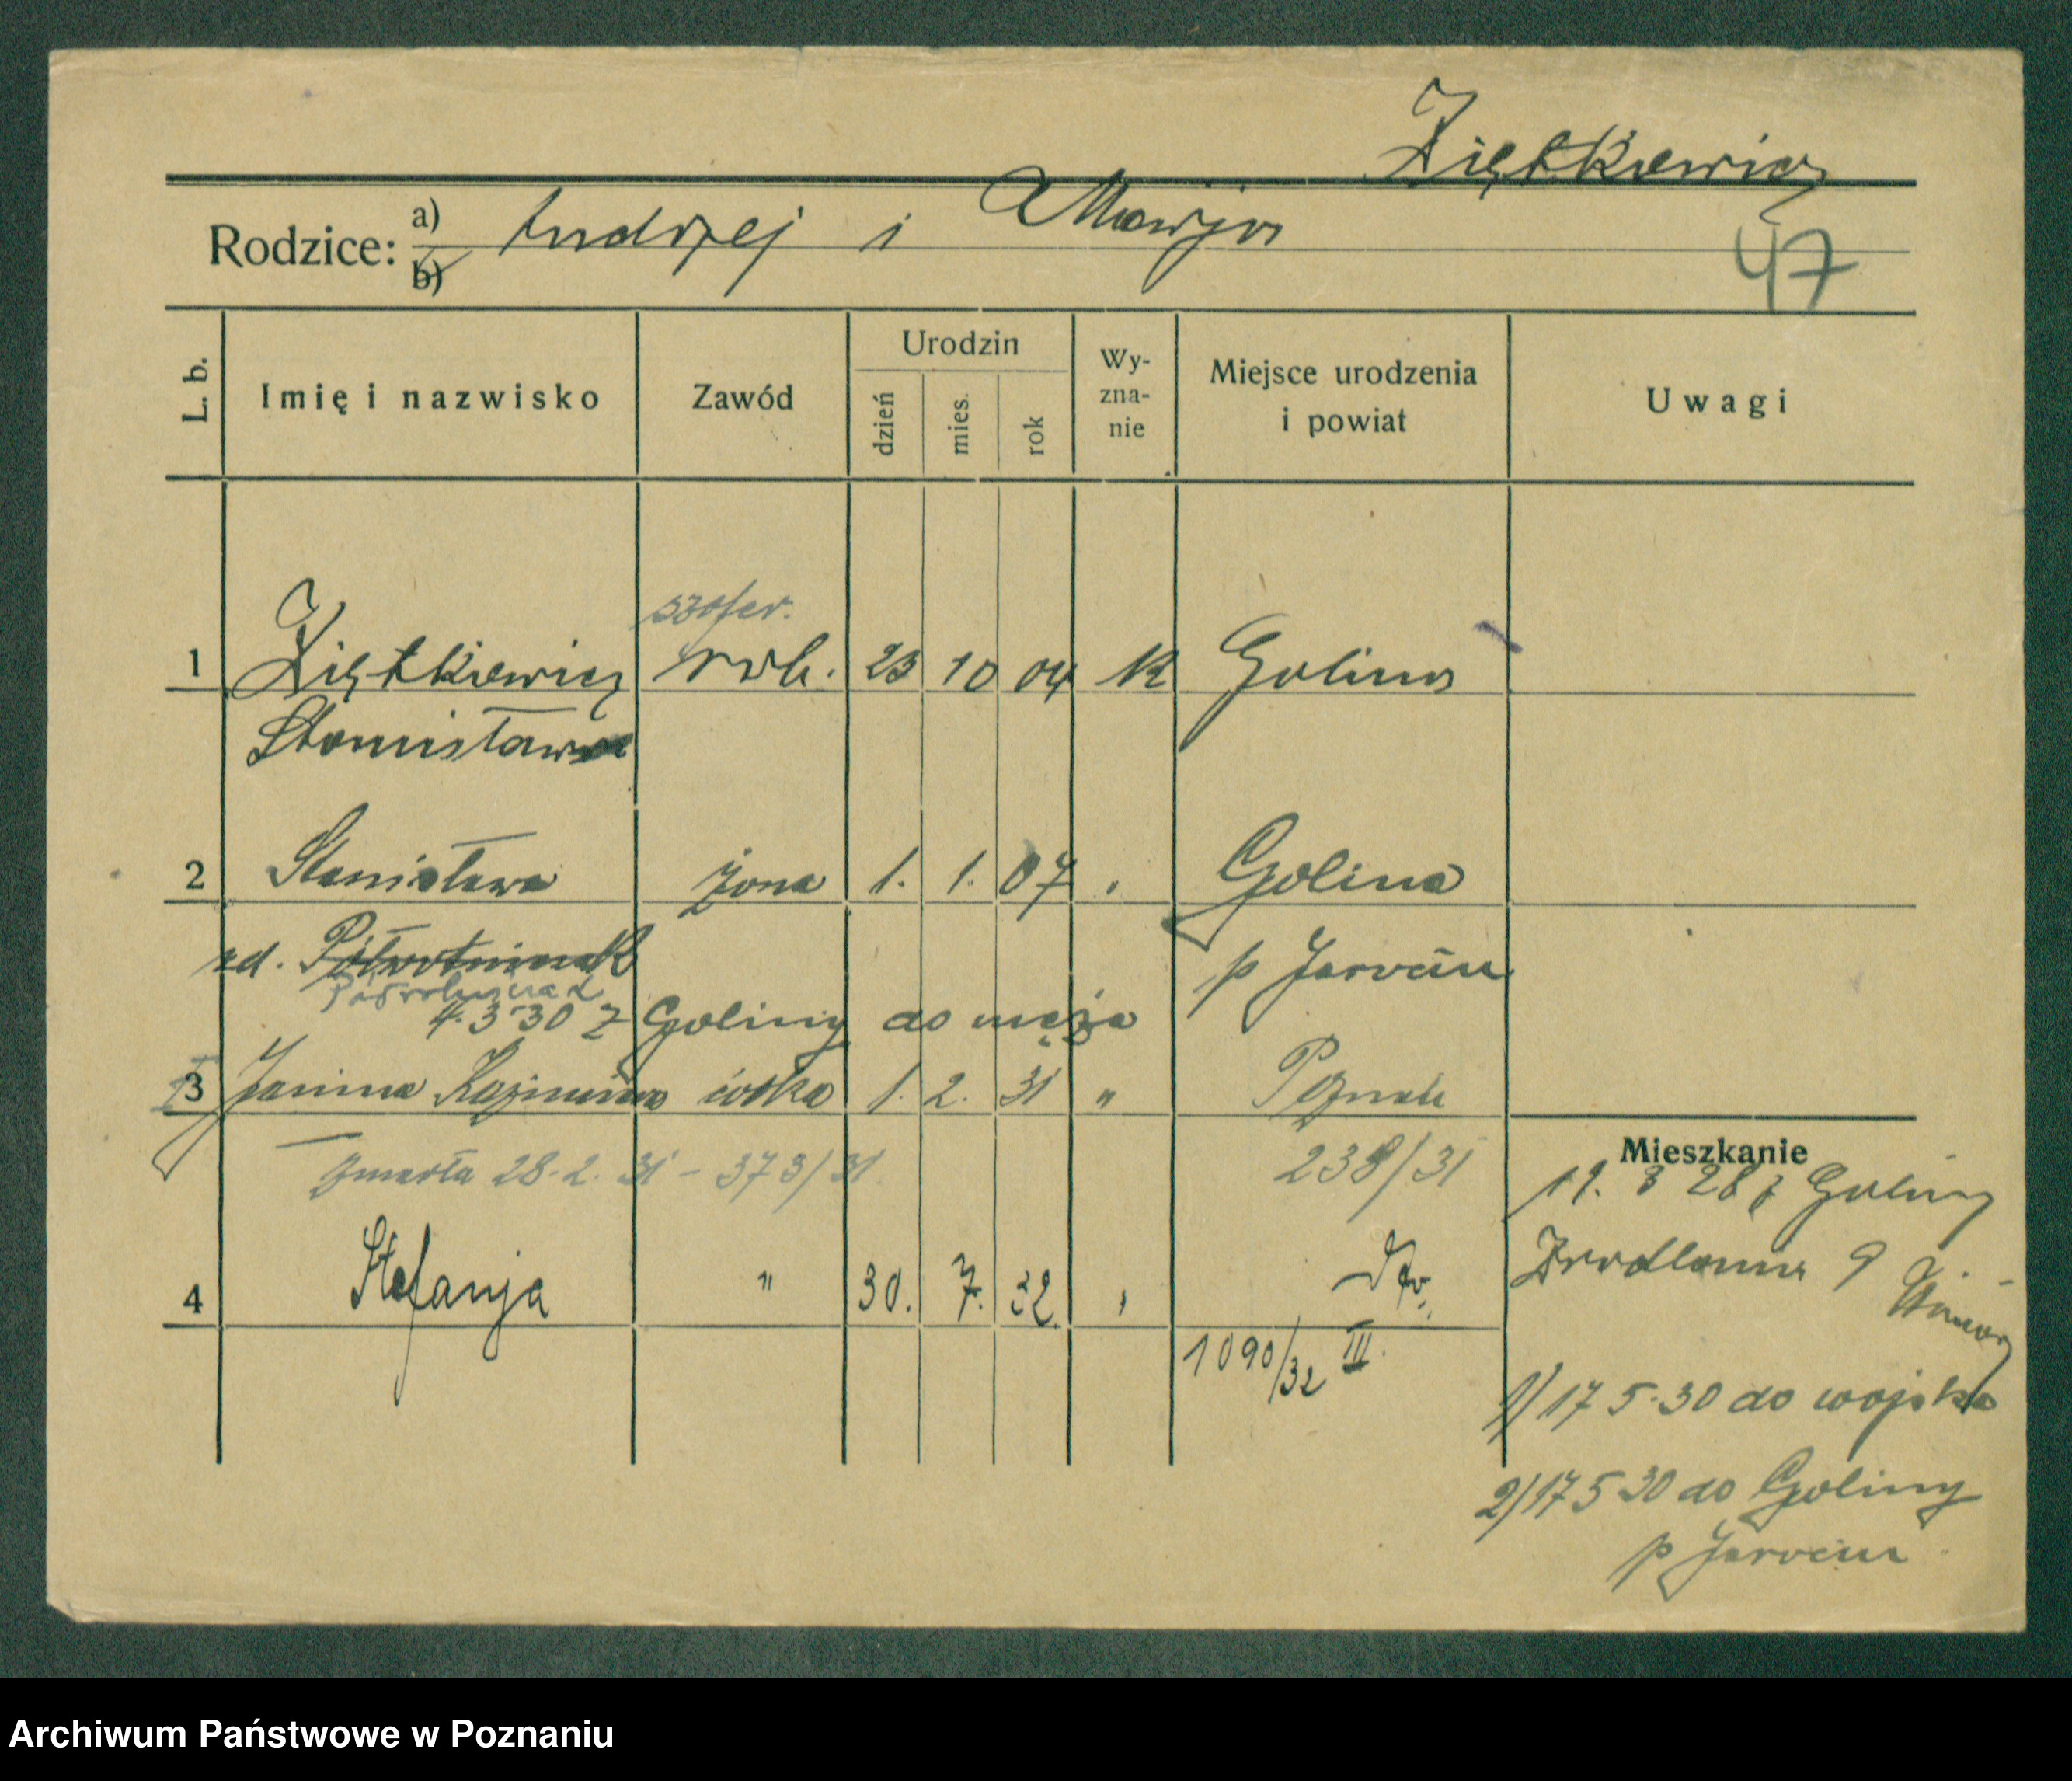 Ziętkiewicz
Rodzice: a) Andrzej i Marja
b)
47
L. b.
Imię i nazwisko
Zawód
Urodzin
dzień
mies.
rok
Wy-
zna-
nie
Miejsce urodzenia
i powiat
Uwagi
szofer.
1 Ziętkiewicz rob. 23 10 04 k Golina
Stanisław
2 Stanisława żona 1. 1. 07 " Golina
zd. p Jarocin
4.3 30 z Goliny do męża
3 Janina Kazimiera córka 1. 2. 31 " Poznań
zmarła 28.2.31 - 373/31. 238/31
4 Stefanja " 30. 7. 32 "
1090/32 III.
Mieszkanie
19. 3 28 z Goliny
9
1/ 17 5.30 do wojska
2/ 17 5 30 do Goliny
p Jarocin
Archiwum Państwowe w Poznaniu